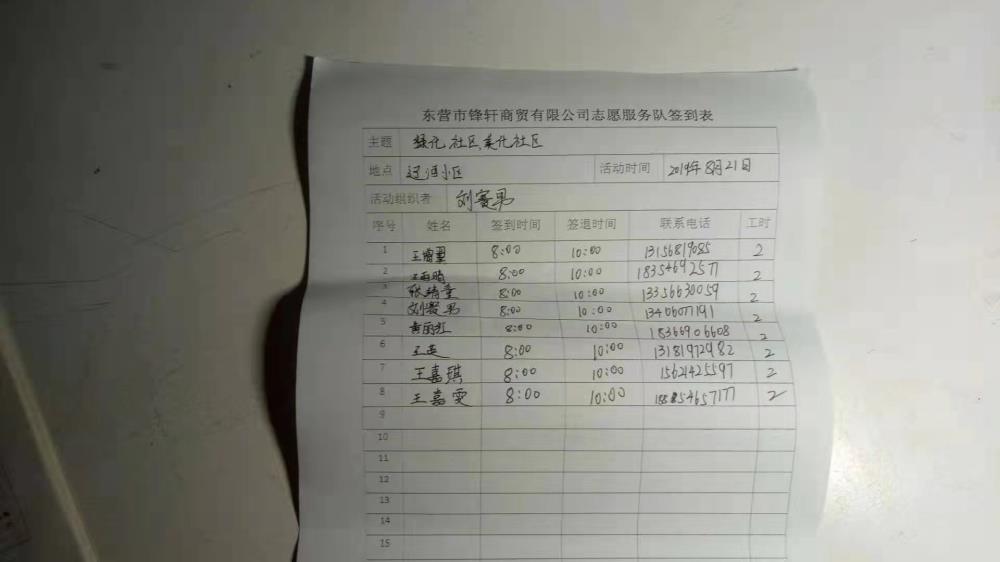 东营市锋轩商贸有限公司志愿服务队签到表
主题 绿化社区,美化社区
地点 小区 活动时间 2019年8月21日
活动组织者 刘赛男
序号 姓名 签到时间 签退时间 联系电话 工时
1 王 8:00 10:00 13156819085 2
2 8:00 10:00 18354692577 2
3 张靖童 8:00 10:00 13356630059 2
4 刘赛男 8:00 10:00 2
5 黄丽红 8:00 10:00 18366906608 2
6 王 8:00 10:00 13181972982 2
7 王嘉琪 8:00 10:00 15621425597 2
8 王嘉雯 8:00 10:00 2
9
10
11
12
13
14
15